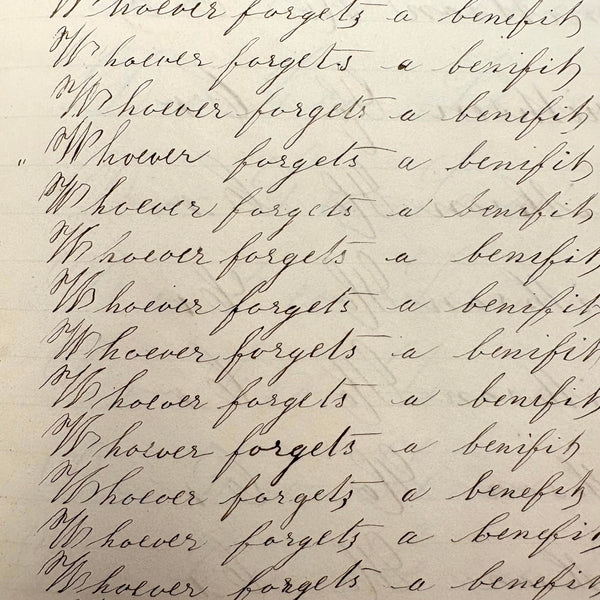 Whoever forgets a benefit
Whoever forgets a benifit
Whoever forgets a benifit
" Whoever forgets a benifit
Whoever forgets a benifit
Whoever forgets a benifit
Whoever forgets a benifit
Whoever forgets a benifit
Whoever forgets a benefit
Whoever forgets a benifit
Whoever forgets a benefit
Whoever forgets a benefit
Whoever forgets a benefit